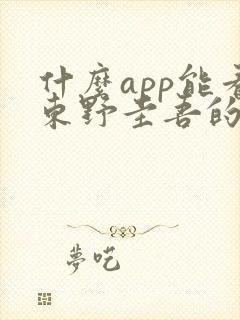 什麼app能看
東野圭吾的
夢吃